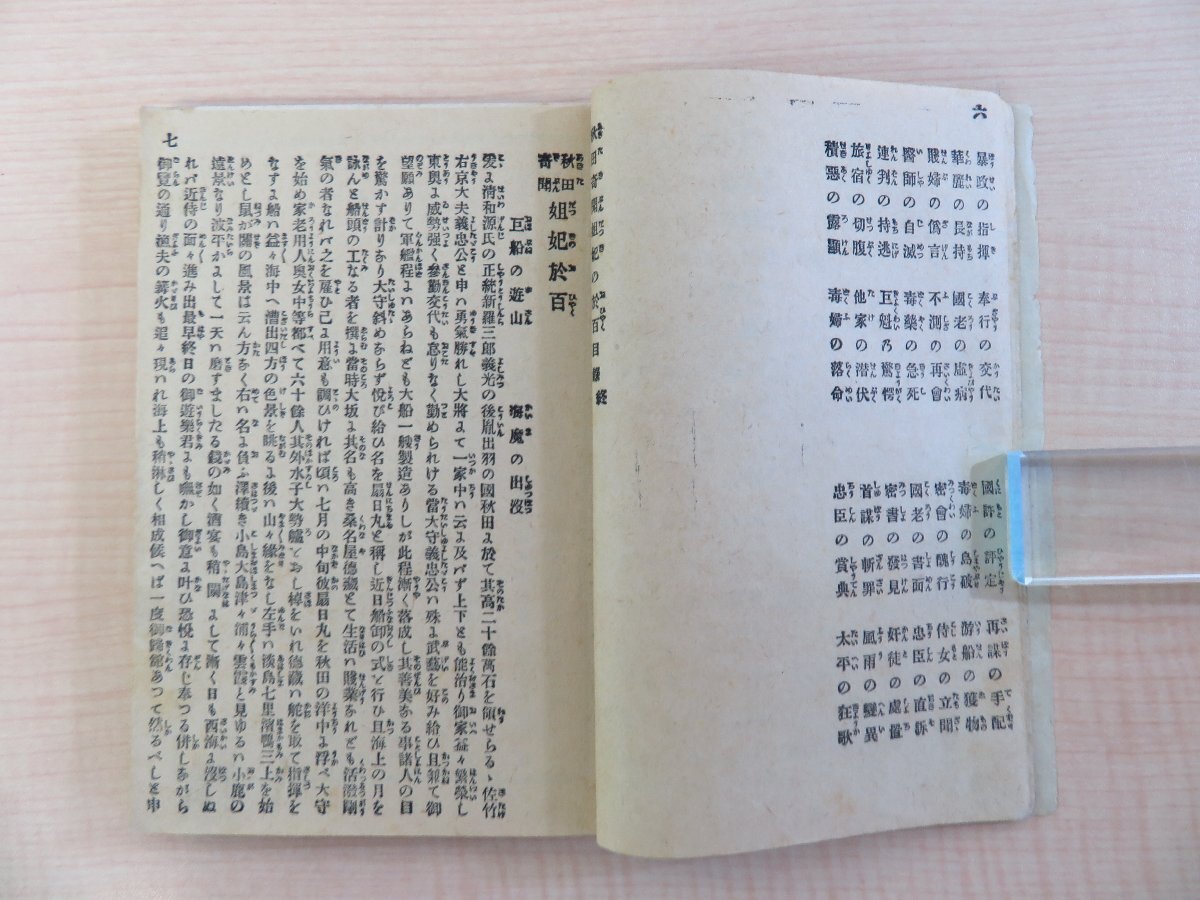 六
暴政の指揮　奉行の交代　國許の評定　再謀の手配
華麗の長持　國老の虚病　毒婦の島破　游船の獲物
賤婦の僞言　不測の再會　密會の醜行　侍女の立聞
醫師の自滅　毒藥の急死　國老の書面　忠臣の直訴
連判の持逃　巨魁乃驚愕　密書の發見　奸徒の處置
旅宿の切腹　他家の潜伏　首謀の斬罪　風雨の變異
積惡の露顯　毒婦の落命　忠臣の賞典　太平の狂歌
秋田奇聞妲妃の於百目録終
秋田奇聞 妲妃於百
巨船の遊山　海魔の出沒
爰よ清和源氏の正統新羅三郎義光の後胤出羽の國秋田よ於て其高二十餘萬石を領せらるゝ佐竹
右京大夫義忠公と申ハ勇氣勝れし大將よて一家中ハ云よ及バず上下とも能治り御家益々繁榮し
東奥よ威勢強く參勤交代も怠りなく勤められける當大守義忠公ハ殊よ武藝を好み給ひ且兼て御
望願ありて軍艦程よハあらねども大船一艘製造ありしが此程漸く落成し其善美なる事諸人の目
を驚かす計りあり大守斜めならず悅び給ひ名を扇日丸と稱し近日船卸の式を行ひ且海上の月を
詠んと船頭の工なる者を撰よ當時大坂よ其名も高き桑名屋德藏とて生活ハ賤業なれども活潑剛
氣の者なれバ之を雇ひ已よ用意も調ひければ頃ハ七月の中旬彼扇日丸を秋田の洋中よ浮べ大守
を始め家老用人奥女中等都べて六十餘人其外水子大勢艫をおし棹をいれ德藏ハ舵を取て指揮を
なすよ船ハ益々海中へ漕出四方の色景を眺るよ後ハ山々緣をなし左手ハ淡島七里濱鴨三上を始
めとし鼠が關の風景は云ん方なく右ハ名よ負ふ澤續き小島大島津々浦々雲霞と見ゆるハ小鹿の
遠景なり波平かよして一天ハ磨すましたる鏡の如く酒宴も稍闌よして漸く日も西海よ沒しぬ
れバ近侍の面々進み出最早終日の御遊樂君よも嘸かし御意よ叶ひ恐悅よ存じ奉つる併しながら
御覽の通り漁夫の篝火も追々現ハれ海上も稍淋しく相成候へば一度御歸館あつて然るべしと申
七